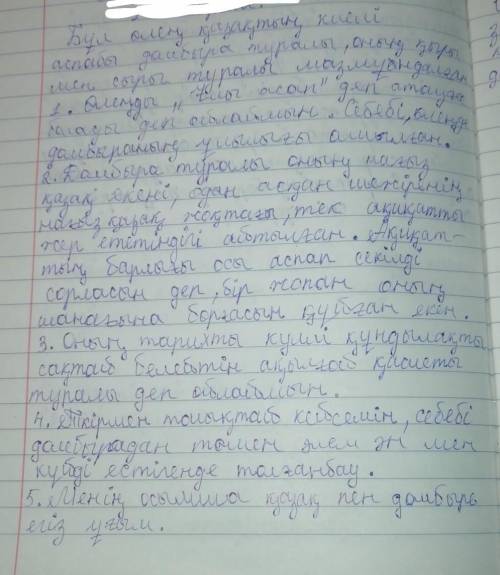 Бұл өлең қазақтың киелі
аспабы домбыра туралы, оның қыры
мен сыры туралы мазмұндалған
1. Өлеңді "Ұлы аспап" деп атауға
болады деп ойлаймын. Себебі, өлеңде
домбыраның ұлылығы айтылған.
2. Домбыра туралы оның нағыз
қазақ екені, одан асқан шежіренің
нағыз қазақ жоқтағы, тек ақиқатты
жер ететіндігі айтылған. Ақиқат-
тың барлығы осы аспап секілді
сорласын деп, бір жопан оның
шанағына борғасын құйған екен.
3. Оның тарихты күмі құндылықты
сақтап келетін ақылғой қасиеті
туралы деп ойлаймын.
4. Пікірмен толықтай келісемін, себебі
домбырадан төмен әем ән мен
күйді естігенде толғанбау.
5. Менің осымша қазақ пен домбыра
егіз ұғым.